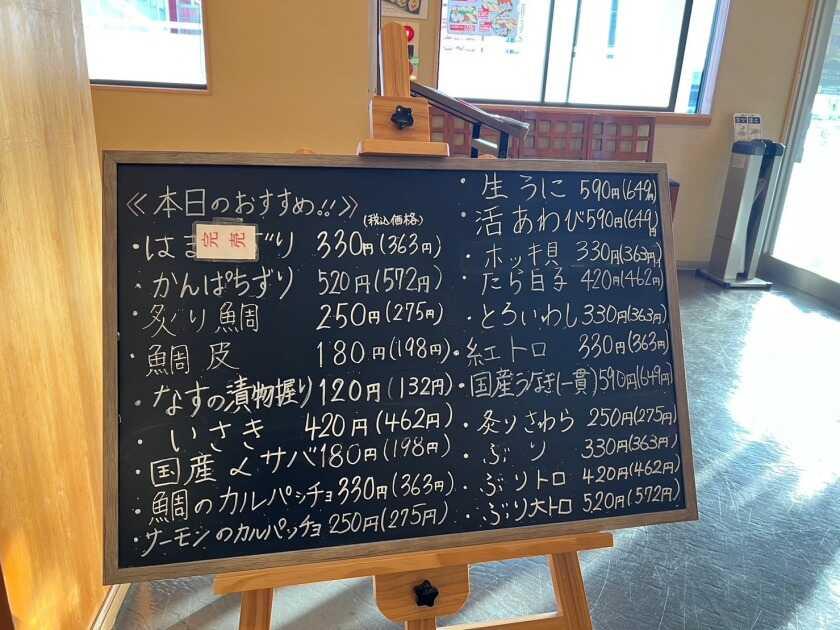 ≪本日のおすすめ!!≫
(税込価格)
・はま 完売 ずり 330円(363円)
・かんぱちずり 520円(572円)
・炙り鯛 250円(275円)
・鯛皮 180円(198円)
・なすの漬物握り 120円(132円)
・いさき 420円(462円)
・国産〆サバ 180円(198円)
・鯛のカルパッチョ 330円(363円)
・サーモンのカルパッチョ 250円(275円)
・生うに 590円(649円)
・活あわび 590円(649円)
・ホッキ貝 330円(363円)
・たら白子 420円(462円)
・とろいわし 330円(363円)
・紅トロ 330円(363円)
・国産うなぎ(一貫) 590円(649円)
・炙りさわら 250円(275円)
・ぶり 330円(363円)
・ぶりトロ 420円(462円)
・ぶり大トロ 520円(572円)